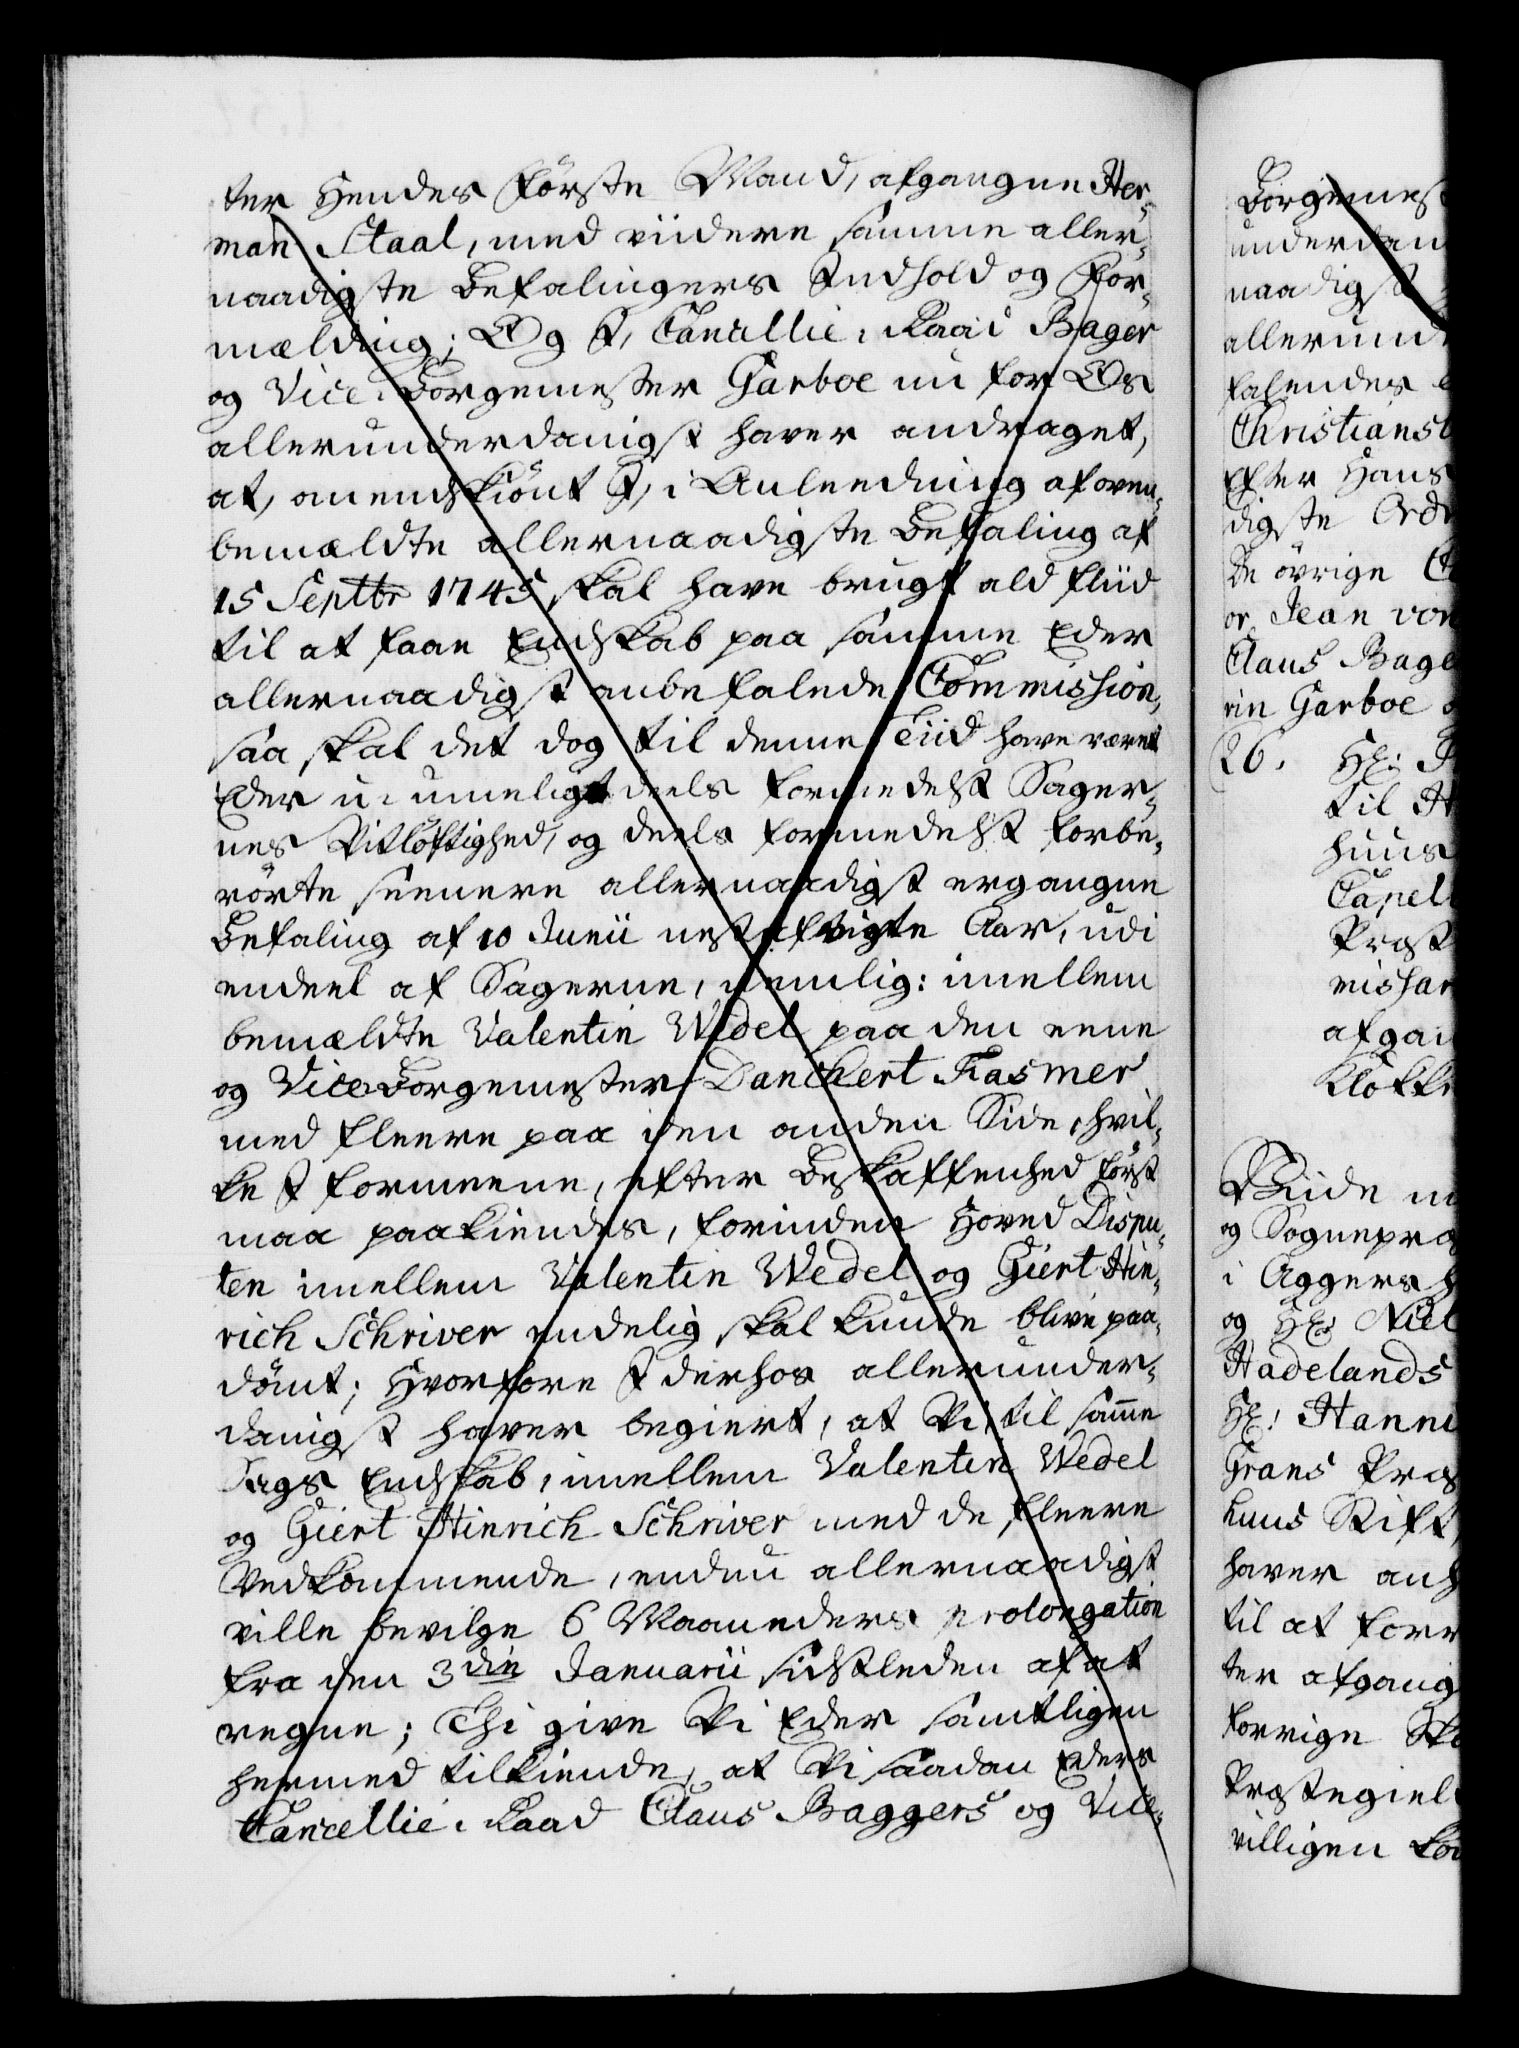 ter Hendes förste Mand, afgangne Her-
man Staal, med viidere samme aller-
naadigste Befalingers Indhold og For-
mælding; Og I, Cancellie-Raad Bager
og Vice-Borgemester Garboe nu for Os
allerunderdanigst haver andraget,
at, omendskiönt I, i Anleedning af oven-
bemældte allernaadigste Befaling af
15 Septbr 1745 skal have brugt ald fliid
til at faae Endskab paa samme Eder
allernaadigst anbefalede Commission,
saa skal det dog til denne Tiid have været
Eder u-mueligt deels formedelst Sager-
nes Vitlöftighed, og deels formedelst forbe-
rörte seenere allernaadigst ergangne
Befaling af 10 Junii nestafvigte Aar, udi
endeel af Sagerne, nemlig: imellem
bemældte Valentin Wedel paa den eene
og Vice Borgemester Danckert Fasmer
med fleere paa den anden Side, hvil-
ke I formeene, efter Beskaffenhed först
maa paakiendes, forinden Hoved Dispu-
ten imellem Valentin Wedel og Giert Hin-
rich Schriver endelig skal kunde blive paa-
dömt; Hvorfore I derhos allerunder-
danigst haver begiert, at Vi, til samme
Sags Endskab, imellem Valentin Wedel
og Giert Hinrich Schriver med de fleere
Vedkommende, endnu allernaadigst
ville bevilge 6 Maaneders prolongation
fra den 3die Januarii sidstleden af at
regne; Thi give Vi Eder samtligen
hermed tilkiende, at Vi saadan Eders
Cancellie-Raad Claus Baggers og Vice-
Borgemest
underdan
naadigst
allerund
falendes
Christiansb
Efter Hans
digste Ord
De övrige
or, Jean von
Claus Bage
rin Garboe
26. Hr:
til H
huus
Capell
Præst
missar
afgan
Klokke
Viide
og Sognepræ
i Aggersh
og Hr: Niel
Hadelands
Hr: Hanni
Grans Præs
huus Stift,
haver anh
til at forr
ter afgang
forrige
Præstegiel
villigen